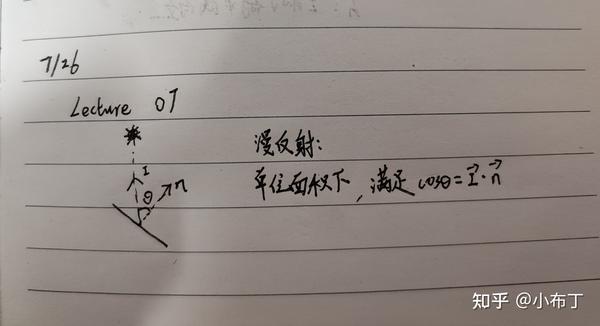 7/26
Lecture 07
I
θ
n
漫反射:
单位面积下,满足 cosθ = I⃗·n⃗
知乎 @小布丁